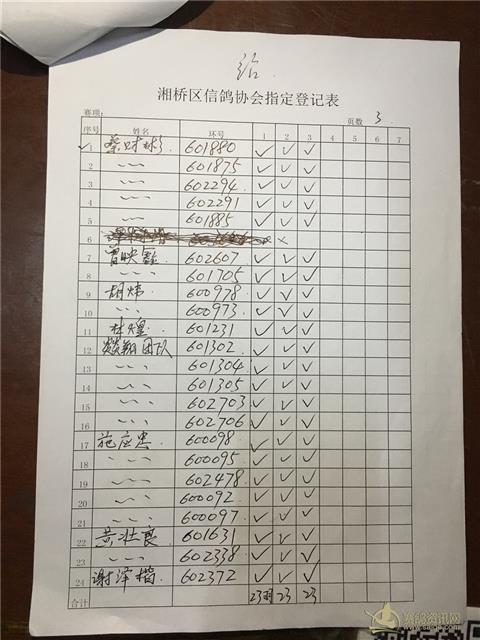 湘桥区信鸽协会指定登记表
赛项: 页数 3
序号 姓名 环号 1 2 3 4 5 6 7
✓1 601880 ✓ ✓ ✓
2 〃 601875 ✓ ✓ ✓
3 〃 602294 ✓ ✓ ✓
4 〃 602291 ✓ ✓ ✓
5 〃 601885 ✓ ✓ ✓
6 ×
7 曾映 602607 ✓ ✓ ✓
8 〃 601705 ✓ ✓ ✓
9 胡炜 600978 ✓ ✓ ✓
10 〃 600973 ✓ ✓ ✓
11 林煌 601231 ✓ ✓ ✓
12 燚翔团队 601302 ✓ ✓ ✓
13 〃 601304 ✓ ✓ ✓
14 〃 601305 ✓ ✓ ✓
15 〃 602703 ✓ ✓ ✓
16 〃 602706 ✓ ✓ ✓
17 施应忠 600098 ✓ ✓ ✓
18 〃 600095 ✓ ✓ ✓
19 〃 602478 ✓ ✓ ✓
20 〃 600092 ✓ ✓ ✓
21 〃 600097 ✓ ✓ ✓
22 黄壮良 601631 ✓ ✓ ✓
23 〃 602338 ✓ ✓ ✓
24 谢泽楷 602372 ✓ ✓ ✓
合计 23羽 23 23
赛鸽资讯网